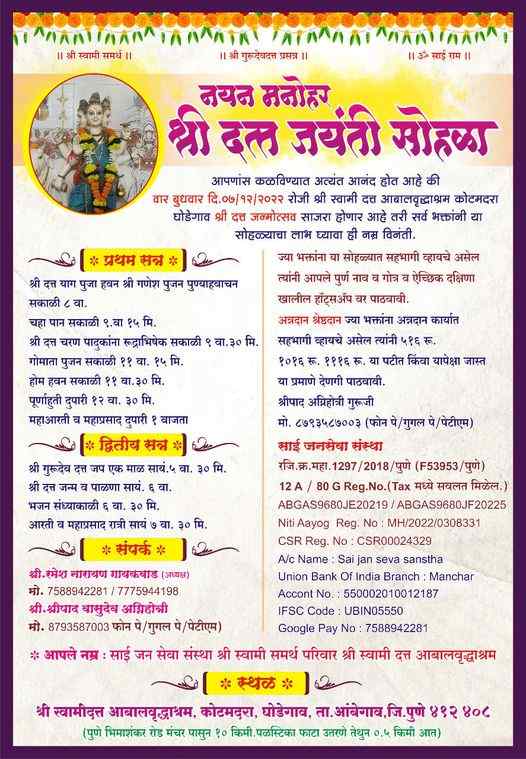 ॥ श्री स्वामी समर्थ ॥
॥ श्री गुरूदेवदत्त प्रसन्न ॥
॥ ॐ साई राम ॥
नयन मनोहर
श्री दत्त जयंती सोहळा
आपणांस कळविण्यात अत्यंत आनंद होत आहे की
वार बुधवार दि.०७/१२/२०२२ रोजी श्री स्वामी दत्त आबालवृद्धाश्रम कोटमदरा
घोडेगाव श्री दत्त जन्मोत्सव साजरा होणार आहे तरी सर्व भक्तांनी या
सोहळ्याचा लाभ घ्यावा ही नम्र विनंती.
प्रथम सत्र
श्री दत्त याग पुजा हवन श्री गणेश पुजन पुण्याहवाचन
सकाळी ८ वा.
चहा पान सकाळी ९.वा १५ मि.
श्री दत्त चरण पादुकांना रूद्राभिषेक सकाळी ९ वा.३० मि.
गोमाता पुजन सकाळी ११ वा. १५ मि.
होम हवन सकाळी ११ वा.३० मि.
पूर्णाहुती दुपारी १२ वा. ३० मि.
महाआरती व महाप्रसाद दुपारी १ वाजता
द्वितीय सत्र
श्री गुरूदेव दत्त जप एक माळ सायं.५ वा. ३० मि.
श्री दत्त जन्म व पाळणा सायं. ६ वा.
भजन संध्याकाळी ६ वा. ३० मि.
आरती व महाप्रसाद रात्री सायं ७ वा. ३० मि.
संपर्क
श्री.रमेश नारायण गायकवाड (अध्यक्ष)
मो. 7588942281 / 7775944198
श्री.श्रीपाद वासुदेव अग्निहोत्री
मो. 8793587003 फोन पे/गुगल पे/पेटीएम)
ज्या भक्तांना या सोहळ्यात सहभागी व्हायचे असेल
त्यांनी आपले पुर्ण नाव व गोत्र व ऐच्छिक दक्षिणा
खालील हॉट्सअँप वर पाठवावी.
अन्नदान श्रेष्ठदान ज्या भक्तांना अन्नदान कार्यात
सहभागी व्हायचे असेल त्यांनी ५१६ रू.
१०१६ रू. १११६ रू. या पटीत किंवा यापेक्षा जास्त
या प्रमाणे देणगी पाठवावी.
श्रीपाद अग्निहोत्री गुरूजी
मो. ८७९३५८७००३ (फोन पे/गुगल पे/पेटीएम)
साई जनसेवा संस्था
रजि.क्र.महा.1297/2018/पुणे (F53953/पुणे)
12 A / 80 G Reg.No.(Tax मध्ये सवलत मिळेल.)
ABGAS9680JE20219 / ABGAS9680JF20225
Niti Aayog Reg. No : MH/2022/0308331
CSR Reg. No : CSR00024329
A/c Name : Sai jan seva sanstha
Union Bank Of India Branch : Manchar
Accont No. : 550002010012187
IFSC Code : UBIN05550
Google Pay No : 7588942281
आपले नम्र : साई जन सेवा संस्था श्री स्वामी समर्थ परिवार श्री स्वामी दत्त आबालवृद्धाश्रम
स्थळ
श्री स्वामीदत्त आबालवृद्धाश्रम, कोटमदरा, घोडेगाव, ता.आंबेगाव,जि.पुणे ४१२ ४०८
(पुणे भिमाशंकर रोड मंचर पासुन १० किमी.पळस्टिका फाटा उतरणे तेथुन ०.५ किमी आत)